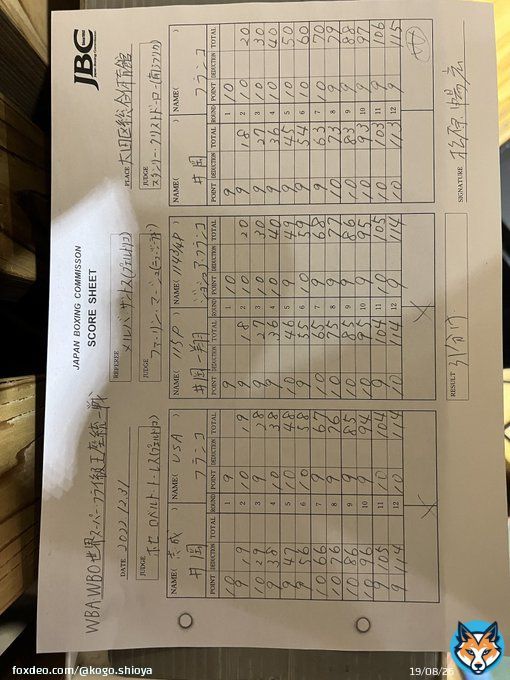 JAPAN BOXING COMMISSON
SCORE SHEET
JBC
WBA WBO 世界スーパーフライ級王座統一戦
DATE 2022.12.31
REFEREE
PLACE 大田区総合体育館
JUDGE
ホセ ロベルト トーレス(プエルトリコ)
JUDGE
JUDGE
NAME( 志成 ) NAME( USA )
井岡 フランコ
POINT DEDUCTION TOTAL ROUND POINT DEDUCTION TOTAL
10 1 9
9 19 2 10 19
10 29 3 9 28
9 38 4 10 38
9 47 5 10 48
9 56 6 10 58
10 66 7 9 67
10 76 8 9 76
10 86 9 9 85
10 96 10 9 94
9 105 11 10 104
9 114 12 10 114
NAME( 115P ) NAME( 114 3/4P )
井岡一翔 ジョシュア・フランコ
POINT DEDUCTION TOTAL ROUND POINT DEDUCTION TOTAL
9 1 10
9 18 2 10 20
9 27 3 10 30
9 36 4 10 40
10 46 5 9 49
9 55 6 10 59
10 65 7 9 68
10 75 8 9 77
10 85 9 9 86
10 95 10 9 95
9 104 11 10 105
10 114 12 9 114
NAME( ) NAME( )
井岡 フランコ
POINT DEDUCTION TOTAL ROUND POINT DEDUCTION TOTAL
9 1 10
9 18 2 10 20
9 27 3 10 30
9 36 4 10 40
9 45 5 10 50
9 54 6 10 60
9 63 7 10 70
10 73 8 9 79
10 83 9 9 88
10 93 10 9 97
10 103 11 9 106
10 113 12 9 115
RESULT 引分け
SIGNATURE
foxdeo.com/@kogo.shioya
19/08/26